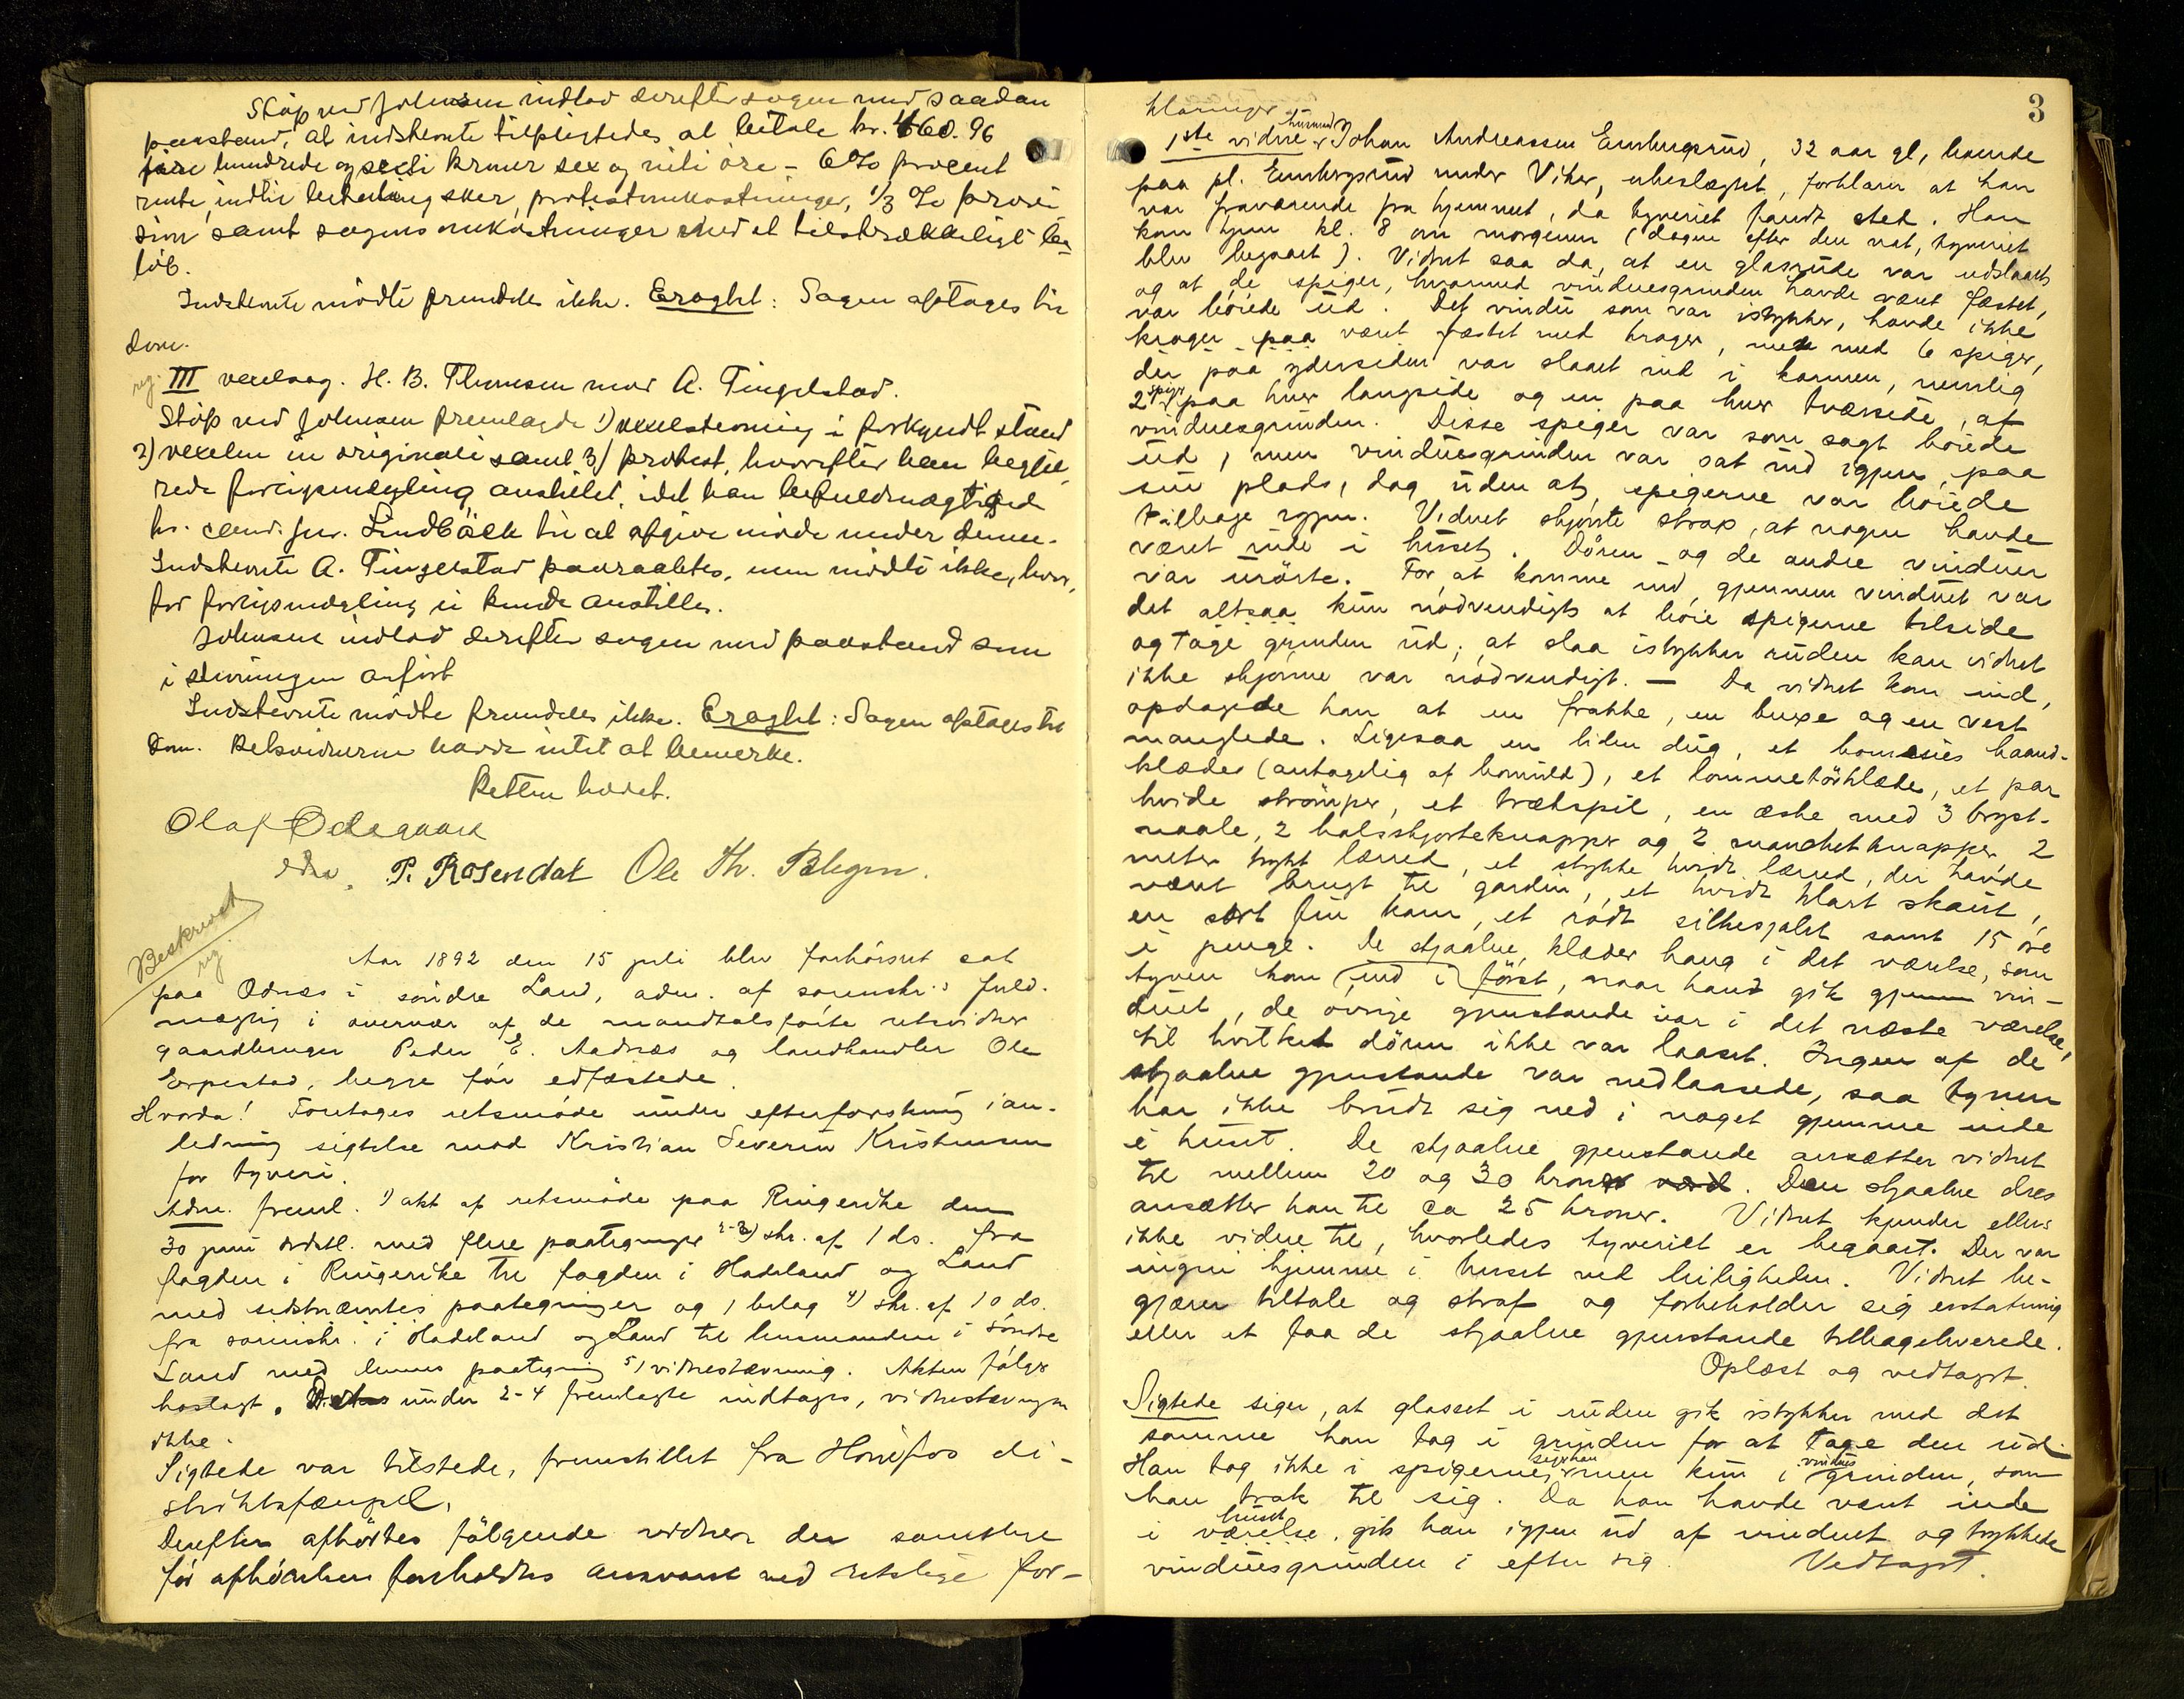 Stöp ved Johnsen indlod derefter sagen med saadan
paastand, at indstevnte tilpligtedes at betale kr. 460.96
fire hundrede og sexti kroner sex og niti öre - 6 % procent
rente, indtil betaling sker, protestomkostninger, 1/3 % provi
sion samt sagens omkostninger med et tilstrækkeligt be-
löb.
Indstevnte mödte fremdeles ikke. Eragtet: Sagen optages til
dom.
rg. III vexelsag. H. B. Thomsen mod A. Tingelstad.
Stöp ved Johnsen fremlagde 1) vexelstevning i forkyndt stand
2) vexelen in originali samt 3) protest, hvorefter han begjæ
rede forligsmægling anstillet, idet han befuldmægtiged
hr. cand. jur. Lindbäck til at afgive möde under denne.
Indstevnte A. Tingelstad paaraabtes, men mödte ikke, hvor,
for forligsmægling ei kunde anstilles.
Johnsen indlod derefter sagen med paastand som
i stevningen anfört
Indstevnte mödte fremdeles ikke. Eragtet: Sagen optages til
Dom. Retsvidnerne havde intet at bemerke.
Retten hævet.
Olaf Ödegaard
P. Rosendal Ole Th. Blegen.
Beskrevet
rg.
Aar 1892 den 15 juli blev forhörsret sat
paa Odnæs i söndre Land, adm. af sorenskr.s fuld-
mægtig i overvær af de mandtalsförte retsvidner
gaardbruger Peder E. Aadnæs og landhandler Ole
Erpestad, begge för edfæstede.
Hvorda! Foretages retsmöde under efterforskning i an-
ledning sigtelse mod Kristian Severin Kristensen
for tyveri.
Adm. freml. 1) akt af retsmöde paa Ringerike den
30 juni sidstl. med flere paategninger 2-3) skr. af 1 ds. fra
fogden i Ringerike til fogden i Hadeland og Land
med sidstnævntes paategninger og 1 bilag 4) skr. af 10 ds.
fra sorenskr. i Hadeland og Land til lensmanden i söndre
Land med dennes paategning 5) vidnestævning. Akten fölger
hoslagt. De under 2-4 fremlagte indtages, vidnestævningen
ikke.
Sigtede var tilstede, fremstillet fra Hönefos di-
striktsfængsel.
Derefter afhörtes fölgende vidner der samtlige
för afhörelsen foreholdtes ansvaret ved retslige for-
3
klaringer
1ste vidne, husmand Johan Andreassen Embergsrud, 32 aar gl, boende
paa pl. Embergsrud under Viker, ubeslægtet, forklarer at han
var fraværende fra hjemmet, da tyveriet fandt sted. Han
kom hjem kl. 8 om morgenen (dagen efter den nat, tyveriet
blev begaaet). Vidnet saa da, at en glasrude var udslaaet
og at de spiger, hvormed vinduesgrinden havde været fæstet,
var böiede ud. Det vindu som var istykker, havde ikke
kroger paa været fæstet med kroger, men med 6 spiger,
der paa ydersiden var slaaet ind i karmen, nemlig
2 spiger paa hver langside og en paa hver tværside, af
vinduesgrinden. Disse spiger var som sagt böiede
ud, men vinduesgrinden var sat ind igjen, paa
sin plads, dog uden at spigerne var böiede
tilbage igjen. Vidnet skjönte strax, at nogen havde
været inde i huset. Dören og de andre vinduer
var urörte. For at komme ind gjennem vinduet var
det altsaa kun nödvendigt at böie spigerne tilside
og tage grinden ud; at slaa istykker ruden kan vidnet
ikke skjönne var nödvendigt. — Da vidnet kom ind,
opdagede han at en frakke, en buxe og en vest
manglede. Ligesaa en liden dug, et haand-
klæde (antagelig af bomuld), et lommetörklæde, et par
hvide strömper, et trækspil, en æske med 3 bryst-
naale, 2 halsskjorteknapper og 2 manchetknapper, 2
meter trykt lærred, et stykke hvidt lærred, der havde
været brugt til gardin, et hvidt klart skaut,
en sort fin kam, et rödt silkesjalet samt 15 öre
i penge. De stjaalne klæder hang i det værelse, som
tyven kom ind i först, naar hand gik gjennem vin-
duet, de övrige gjenstande var i det næste værelse,
til hvilket dören ikke var laaset. Ingen af de
stjaalne gjenstande var nedlaasede, saa tyven
har ikke brudt sig ned i noget gjemme inde
i huset. De stjaalne gjenstande ansætter vidnet
til mellem 20 og 30 kroner værd. Den stjaalne dres
ansætter han til ca 25 kroner. Vidnet kjender ellers
ikke videre til, hvorledes tyveriet er begaaet. Der var
ingen hjemme i huset ved leiligheden. Vidnet be-
gjærer tiltale og straf og forbeholder sig erstatning
eller at faa de stjaalne gjenstande tilbageleverede.
Oplæst og vedtaget.
Sigtede siger, at glasset i ruden gik istykker med det
samme han tog i grinden for at tage den ud.
Han tog ikke i spigerne, siger han men kun i vindus grinden, som
han trak til sig. Da han havde været inde
i huset værelse, gik han igjen ud af vinduet og trykkede
vinduesgrinden i efter sig. Vedtaget.